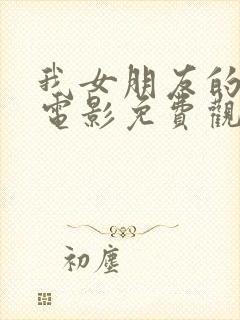 我女朋友的
電影免費觀
初塵